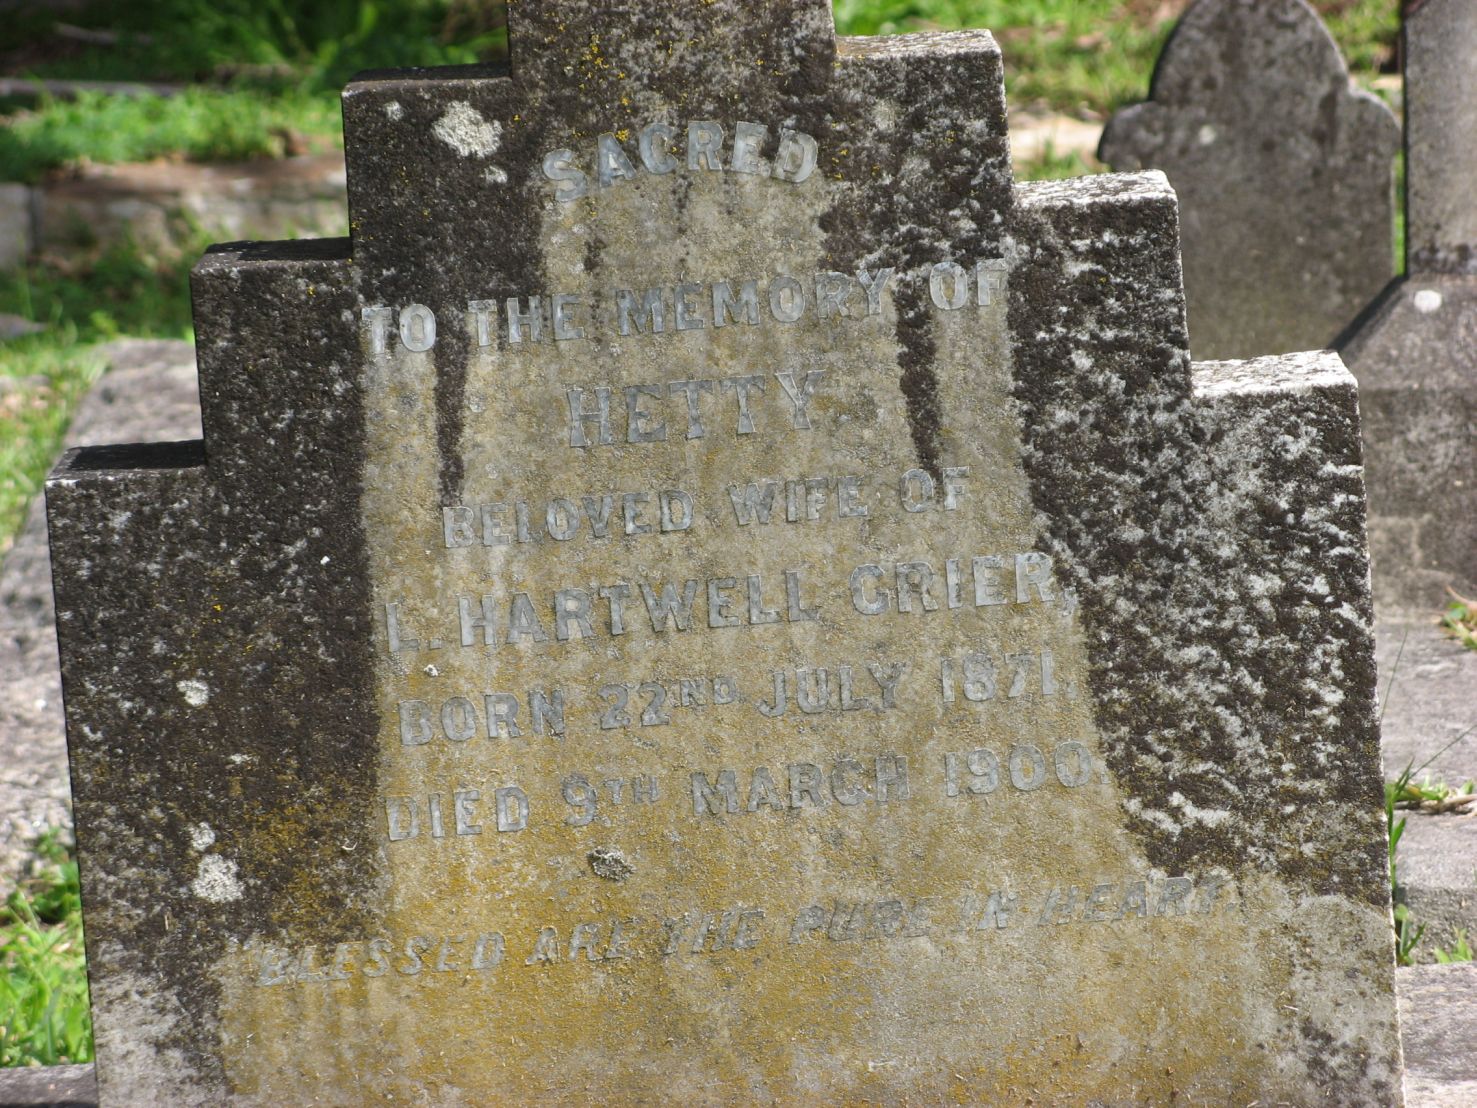 SACRED
TO THE MEMORY OF
HETTY.
BELOVED WIFE OF
L. HARTWELL GRIER,
BORN 22ND JULY 1871.
DIED 9TH MARCH 1900.
"BLESSED ARE THE PURE IN HEART."